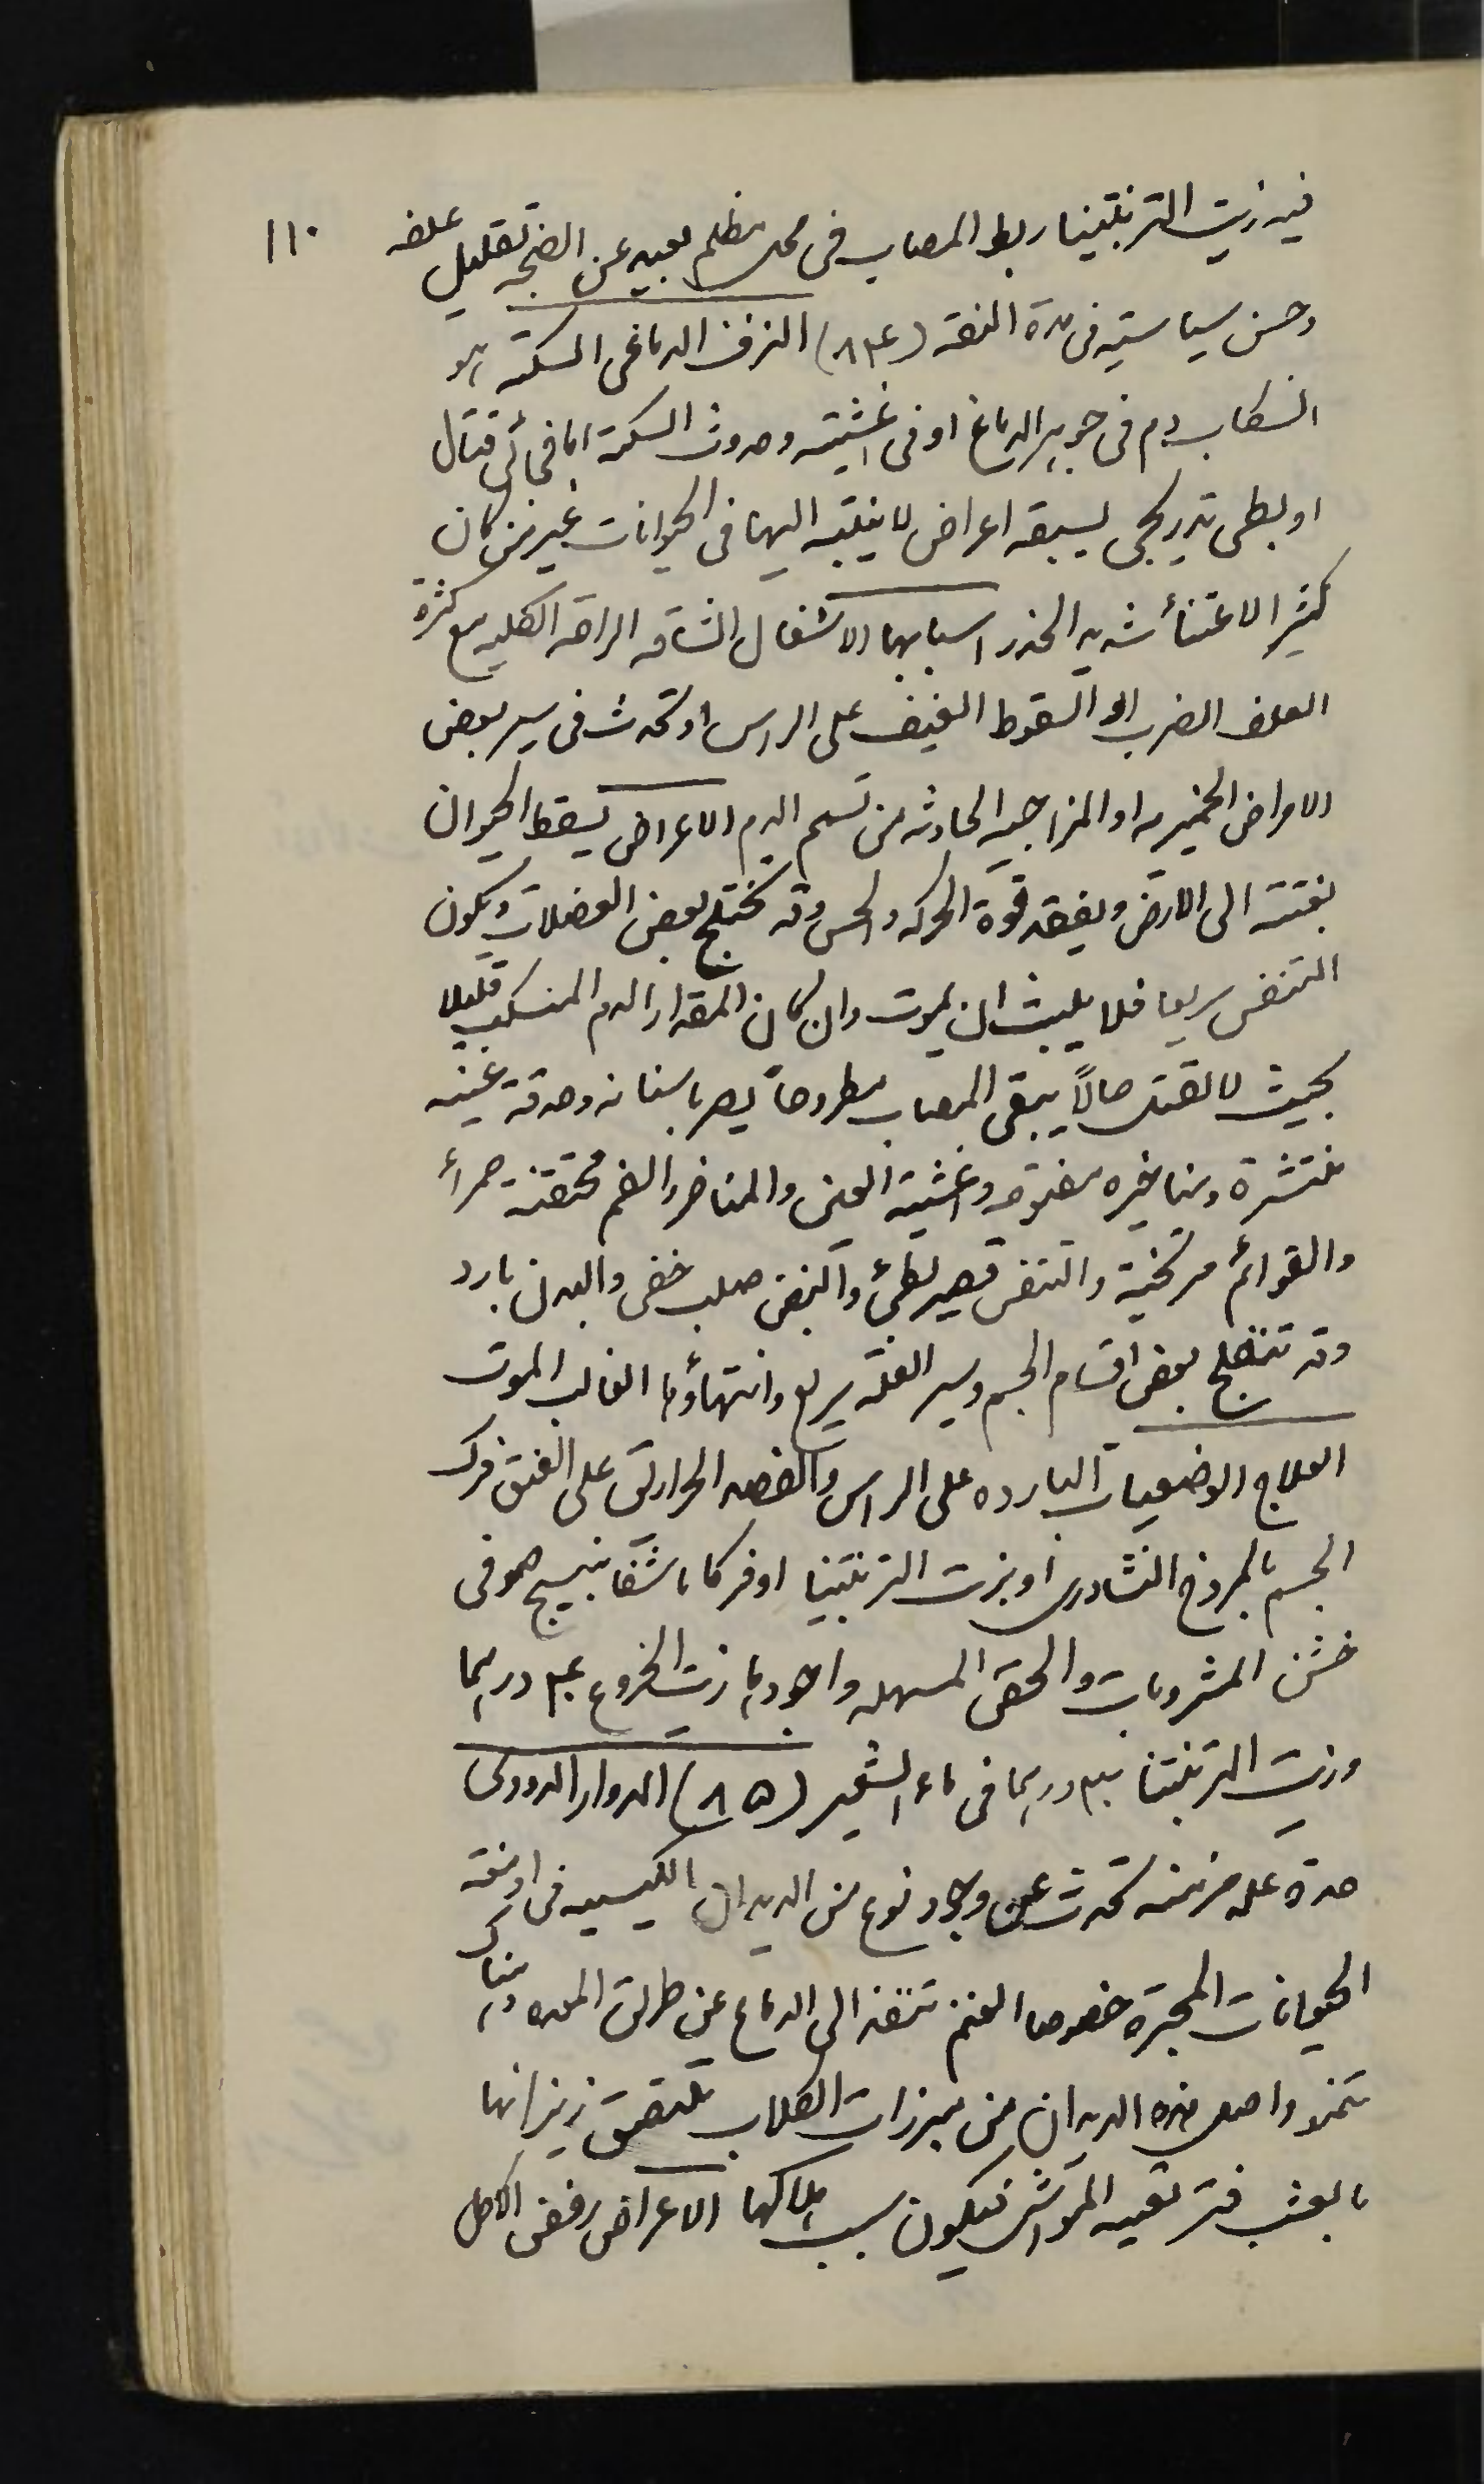 ١١٠
فيه زيت التربنتينا ربط المصاب فى محل مظلم بعيد عن الضجه تقليل علفه
وحسن سياسيته فى مدة النقه (٨٤) النزف الدماغى السكته هو
انسكاب دم فى جوهر الدماغ او فى اغشيته وحدوث السكته اما فجأئى قتال
او بطى تدريجى يسبقه اعراض لا ينتبه اليها فى الحيوانات غير من كان
كثير الاعتنأ شديد الحذر اسبابها الاشغال الشاقه الراحه الكليه مع كثرة
العلف الضرب او السقوط العنيف على الراس او تحدث فى سير بعض
الامراض الخميره او المزاجيه الحادثه من تسمم الدم الاعراض يسقط الحيوان
بغتته الى الارض ويفقد قوة الحركه والحس وقد تختلج بعض العضلات ويكون
التنفس سريعا فلا يلبث ان يموت وان كان المقدار الدم المنسكب قليلا
بحيث لا تقتل حالاً يبقى المصاب مطروحاً يصر باسنانه وحدقة عينه
منتشرة ومناخيره مفتوحه واغشية العين والمناخر والفم محتقنة حمرأ
والقوائم مرتخية والتنفس قصير بطئ والنبض صلب خفى والبدن بارد
وقد تنفلج بعض اقسام الجسم وسير العلة سريع وانتهاؤها الغالب الموت
العلاج الوضعيات البارده على الراس والفصد الحرارتى على العنق فرك
الجسم بالمروخ النشادرى او بزيت التربنتينا او فركا ناشفا بنسيج صوفى
خشن المشروبات والحقن المسهله واجودها زيت الخروع درهما
وزيت التربنتنا درهما فى ماء الشعير (٨٥) الدوار الدودى
هذة علة مزمنه تحدث عن وجود نوع من الديدان الكيسيه فى ادمغة
الحيوانات المجترة خصوصا الغنم تنفذ الى الدماغ عن طريق المعده وهناك
تنمو واصل هذه الديدان من مبرزات الكلاب تلتصق زيزانها
بالعشب فترتعيه المواشى فيكون سبب هلاكها الاعراض رفض الاكل